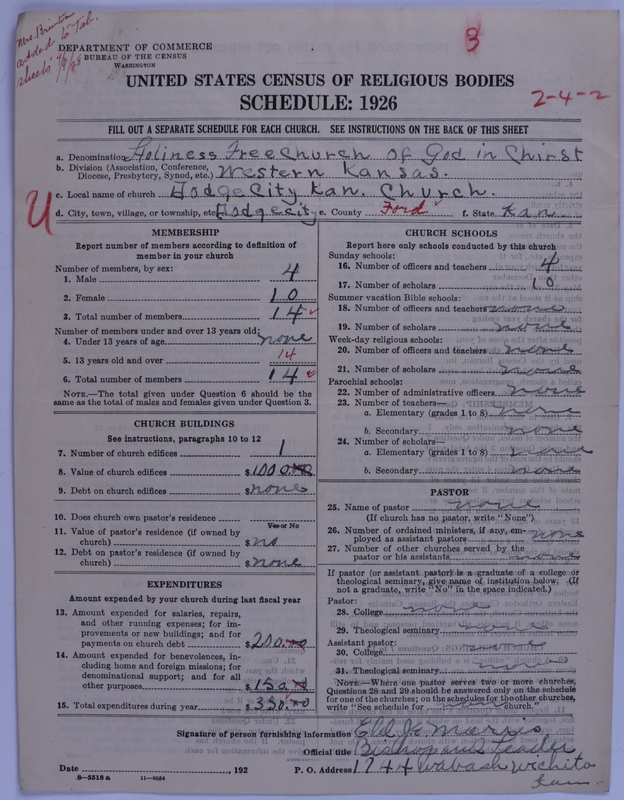 Mrs. Brinton
added to Tab.
sheets 7/9/28
3
DEPARTMENT OF COMMERCE
BUREAU OF THE CENSUS
WASHINGTON
UNITED STATES CENSUS OF RELIGIOUS BODIES
SCHEDULE: 1926
2-4-2
FILL OUT A SEPARATE SCHEDULE FOR EACH CHURCH. SEE INSTRUCTIONS ON THE BACK OF THIS SHEET
a. Denomination Holiness Free Church of God in Chirst
b. Division (Association, Conference, Diocese, Presbytery, Synod, etc.) Western Kansas.
c. Local name of church Dodge City Kan. Church.
d. City, town, village, or township, etc. Dodgecity e. County Ford f. State Kan
MEMBERSHIP
Report number of members according to definition of
member in your church
Number of members, by sex:
1. Male 4
2. Female 10
3. Total number of members 14
Number of members under and over 13 years old:
4. Under 13 years of age none
5. 13 years old and over 14
6. Total number of members 14
NOTE.—The total given under Question 6 should be
same as the total of males and females given under Question 3.
CHURCH BUILDINGS
See instructions, paragraphs 10 to 12
7. Number of church edifices 1
8. Value of church edifices $1000.00
9. Debt on church edifices $none
10. Does church own pastor's residence
Yes or No
11. Value of pastor's residence (if owned by
church) $no
12. Debt on pastor's residence (if owned by
church) $none
EXPENDITURES
Amount expended by your church during last fiscal year
13. Amount expended for salaries, repairs,
and other running expenses; for im-
provements or new buildings; and for
payments on church debt $200.00
14. Amount expended for benevolences, in-
cluding home and foreign missions; for
denominational support; and for all
other purposes $150.00
15. Total expenditures during year $350.00
CHURCH SCHOOLS
Report here only schools conducted by this church
Sunday schools:
16. Number of officers and teachers 4
17. Number of scholars 10
Summer vacation Bible schools:
18. Number of officers and teachers none
19. Number of scholars none
Week-day religious schools:
20. Number of officers and teachers none
21. Number of scholars none
Parochial schools:
22. Number of administrative officers none
23. Number of teachers—
a. Elementary (grades 1 to 8) none
b. Secondary none
24. Number of scholars—
a. Elementary (grades 1 to 8) none
b. Secondary none
PASTOR
25. Name of pastor none
(If church has no pastor, write "None")
26. Number of ordained ministers, if any, em-
ployed as assistant pastors none
27. Number of other churches served by the
pastor or his assistants none
If pastor (or assistant pastor) is a graduate of a college or
theological seminary, give name of institution below. (If
not a graduate, write "No" in the space indicated.)
Pastor:
28. College none
29. Theological seminary none
Assistant pastor:
30. College none
31. Theological seminary none
NOTE.—Where one pastor serves two or more churches,
Questions 28 and 29 should be answered only on the schedule
for one of the churches; on the schedules for the other churches,
write "See schedule for church."
Signature of person furnishing information Eld
Official title Bishop and Leader
Date , 192 P. O. Address 1744 Wabash Wichita
Kan.
8—5518 a 11—9084